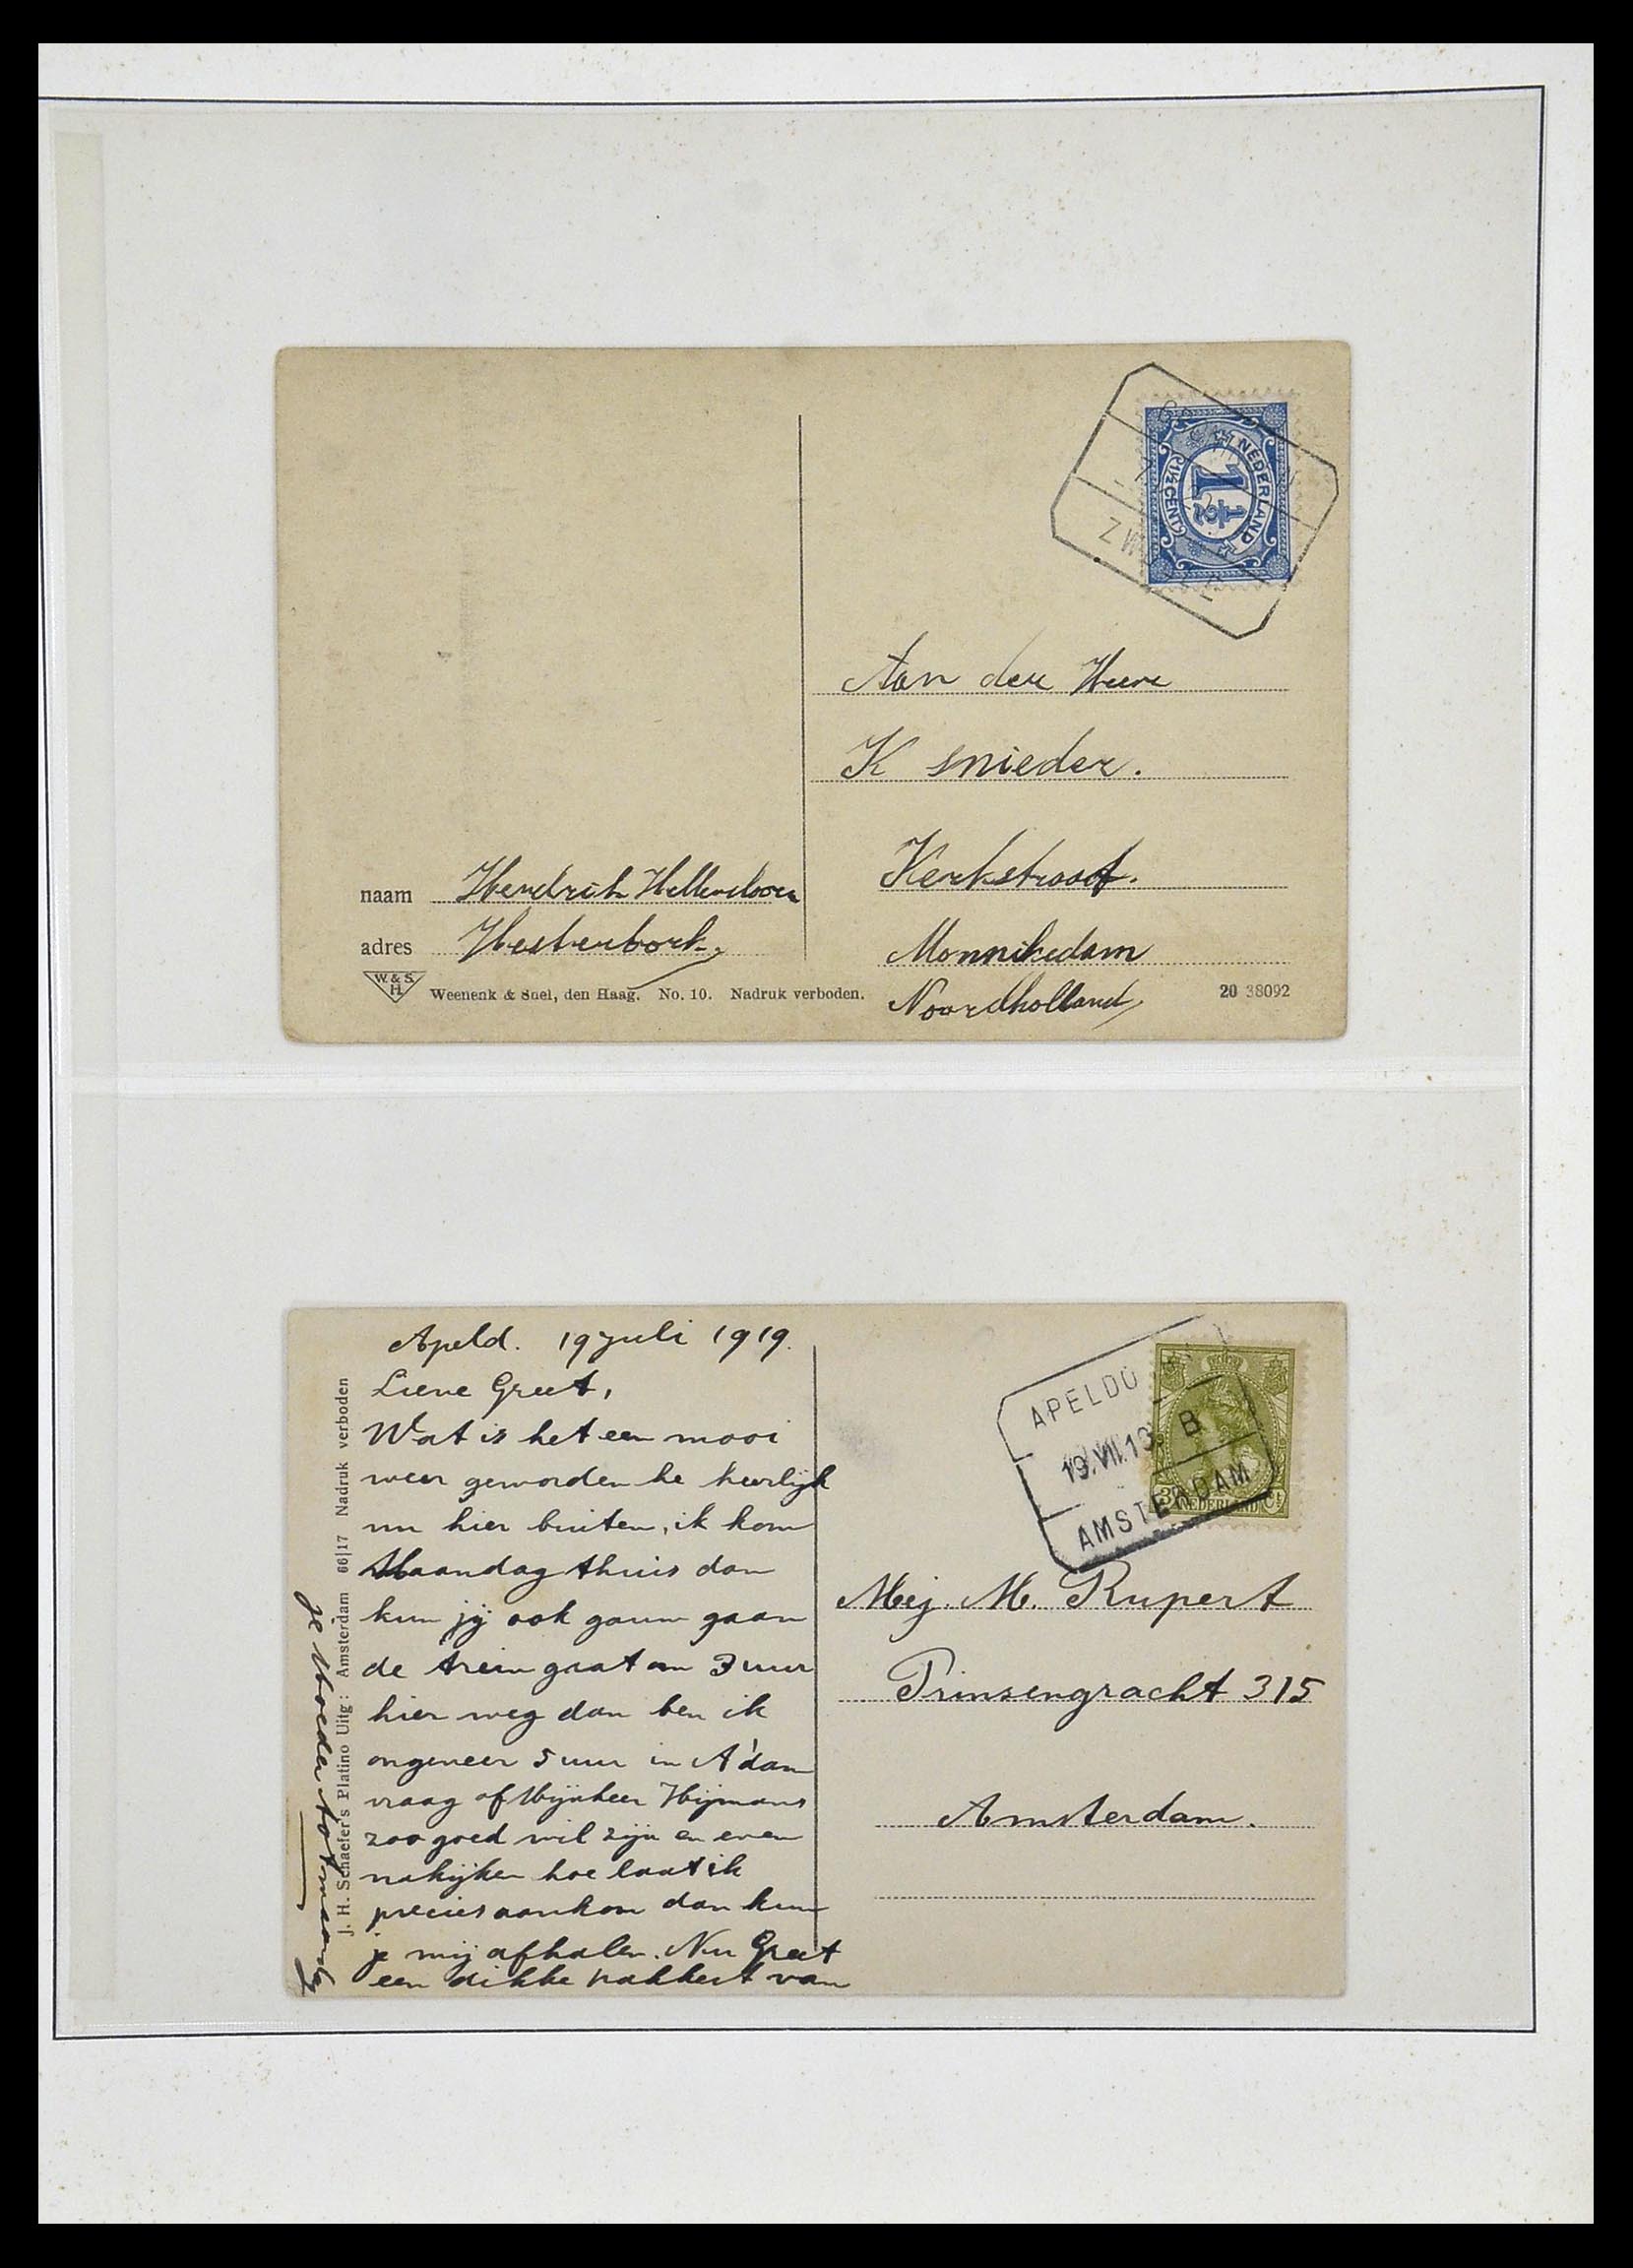 NEDERLAND
1½
1½ CENT
ZWOLLE
Aan den Heere
K snieder.
Kerkstraat.
Monnikedam
Noordholland
naam Hendrik Hellendoorn
adres Westerbork.
W. & S.
H.
Weenenk & Snel, den Haag. No. 10. Nadruk verboden.
20 38092
Apeld. 19 Juli 1919.
Lieve Greet,
Wat is het een mooi
weer geworden he heerlijk
nu hier buiten, ik kom
Maandag thuis dan
kun jij ook gauw gaan
de trein gaat om 3 uur
hier weg dan ben ik
ongeveer 5 uur in A'dam
vraag of Mijnheer Hijmans
zoo goed wil zijn en even
nakijken hoe laat ik
precies aankom dan kun
je mij afhalen. Nu Greet
een dikke pakkert van
je Moeder tot maandag
J. H. Schaefer's Platino Uitg: Amsterdam 66|17 Nadruk verboden
APELDO
19.VII.19 B
AMSTERDAM
3 Ct
NEDERLAND
Mej. M. Rupert
Prinsengracht 315
Amsterdam.